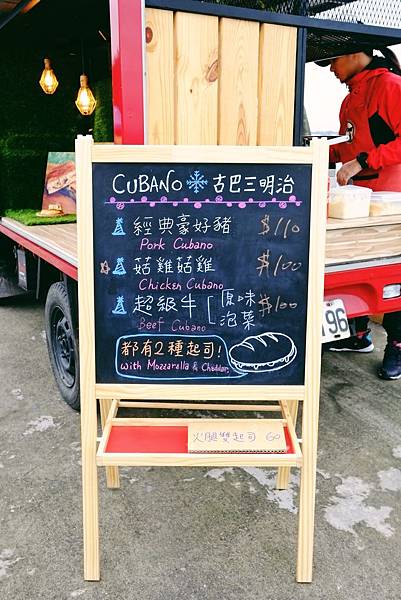 CUBANO ❄ 古巴三明治
經典豪好豬 $110
Pork Cubano
菇雞菇雞 $100
Chicken Cubano
超級牛 [原味 泡菜 $100
Beef Cubano
都有2種起司!
with Mozzarella & Cheddar.
火腿雙起司 60
96